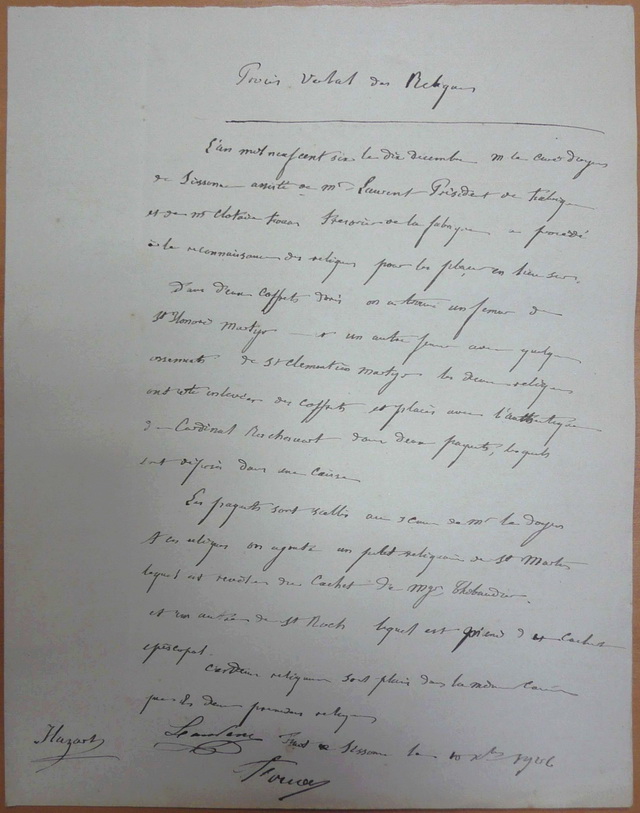 Procès Verbal des Reliques
L'an mil neuf cent six le dix decembre M le curé doyen
de Sissonne assisté de Mr Laurent Président de fabrique
et de Mr Clotaire Tresorier de la fabrique a procédé
à la reconnaissance des reliques pour les placer en lieu sûr.
Dans deux coffrets dorés on a trouvé un femur de
St Honoré Martyr et un autre femur avec quelques
ossements de St Clementien Martyr les deux reliques
ont été enlevées des coffrets et placés avec l'authentique
du Cardinal Rochouart dans deux paquets, lesquels
sont déposés dans une caisse
Les paquets sont scellés au sceau de Mr le doyen
A ces reliques on ajoute un petit reliquaire de St Martin
lequel est revêtu du Cachet de Mgr Thibaudier.
et un autre de St Roch lequel est du Cachet
episcopal.
Ces deux reliquaires sont placés dans la même Caisse
que les deux premières reliques
Fait à Sissonne le 10 Xbre 1906
Hazart